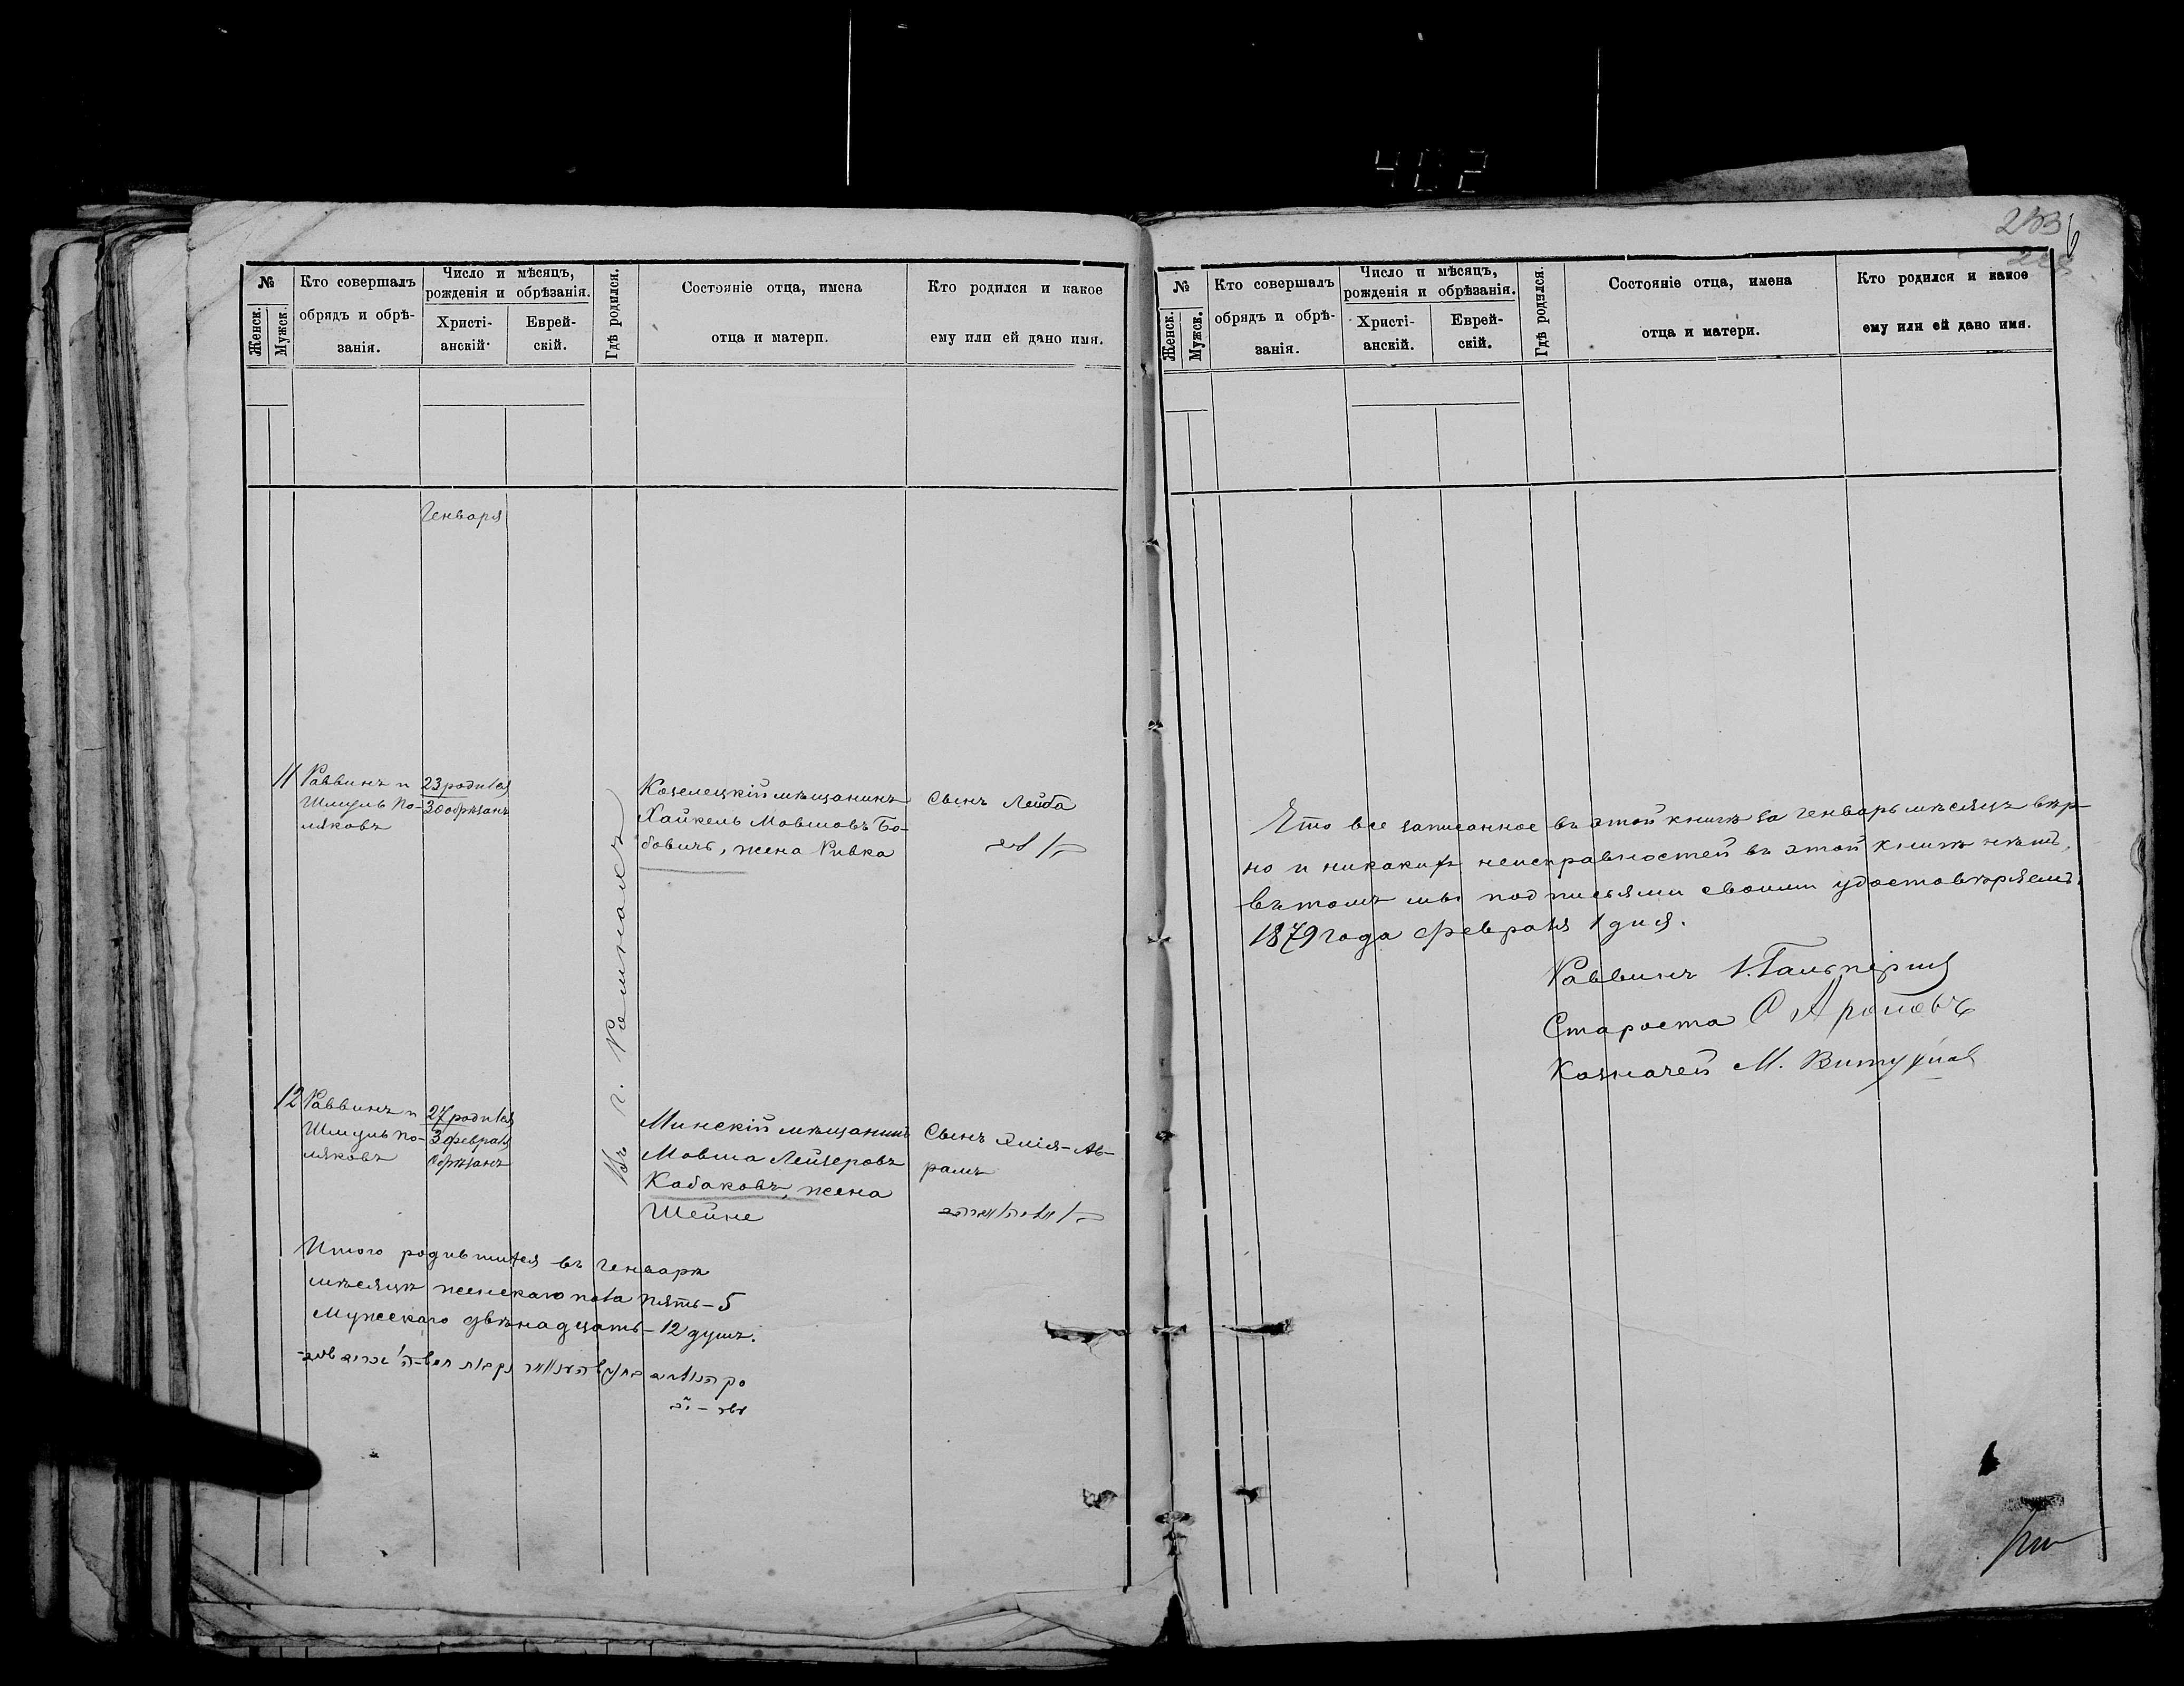 402
253
№
Женск.
Мужск.
Кто совершалъ
обрядъ и обрѣ-
занія.
Число и мѣсяцъ,
рожденія и обрѣзанія.
Христі-
анскій.
Еврей-
скій.
Гдѣ родился.
Состояніе отца, имена
отца и матери.
Кто родился и какое
ему или ей дано имя.
Генваря
11
Раввинъ и
Шмуль По-
ляковъ
23 родился
30 обрѣзанъ
Въ г. Ременчале
Козелецкій мѣщанинъ
Хайкель Мовшовъ Бо-
бовичъ, жена Ривка
Сынъ Лейба
12
Раввинъ и
Шмуль По-
ляковъ
27 родился
3 февраля
обрѣзанъ
Минскій мѣщанинъ
Мовша Лейзеровъ
Кабаковъ, жена
Шейне
Сынъ Аб-
рамъ
Итого родившихся въ Генварѣ
мѣсяцѣ женскаго пола пять - 5
Мужескаго двѣнадцать - 12 душъ.
№
Женск.
Мужск.
Кто совершалъ
обрядъ и обрѣ-
занія.
Число и мѣсяцъ,
рожденія и обрѣзанія.
Христі-
анскій.
Еврей-
скій.
Гдѣ родился.
Состояніе отца, имена
отца и матери.
Кто родился и какое
ему или ей дано имя.
Что все записанное въ этой книгѣ за Генварь мѣсяцъ вѣр-
но и никакихъ неисправностей въ этой книгѣ нѣтъ,
въ томъ мы подписями своими удостовѣряемъ.
1879 года февраля 1 дня.
Раввинъ І. Гальперинъ
Староста О Ароновъ
Казначей М.